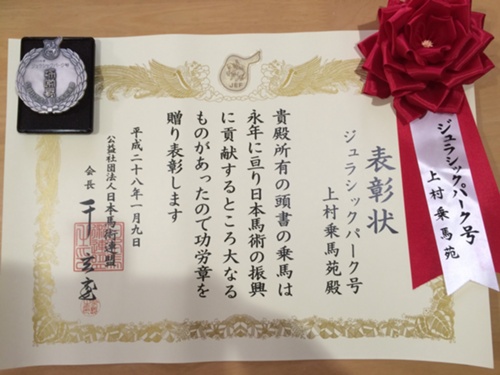 表彰状
ジュラシックパーク号
上村乗馬苑殿
貴殿所有の頭書の乗馬は
永年に亘り日本馬術の振興
に貢献するところ大なる
ものがあったので功労章を
贈り表彰します
平成二十八年一月九日
公益社団法人日本馬術連盟
会長 千玄室
JEF
ジュラシックパーク号
上村乗馬苑